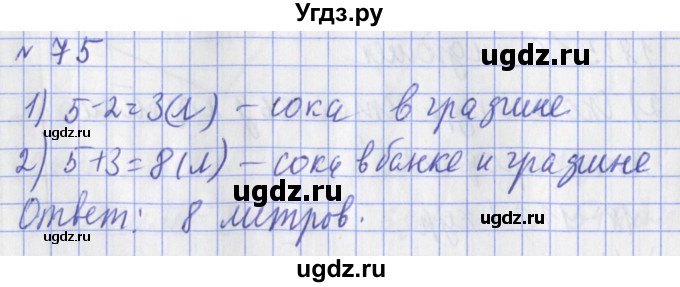 Угдз.ру
№ 75
ugdz.ru ugdz.ru
1) 5-2=3(л) – сока в графине
ugdz.ru ugdz.ru
2) 5+3=8(л) – сока в банке и графине
ugdz.ru
Ответ: 8 литров.
ugdz.ru ugdz.ru
ugdz.ru